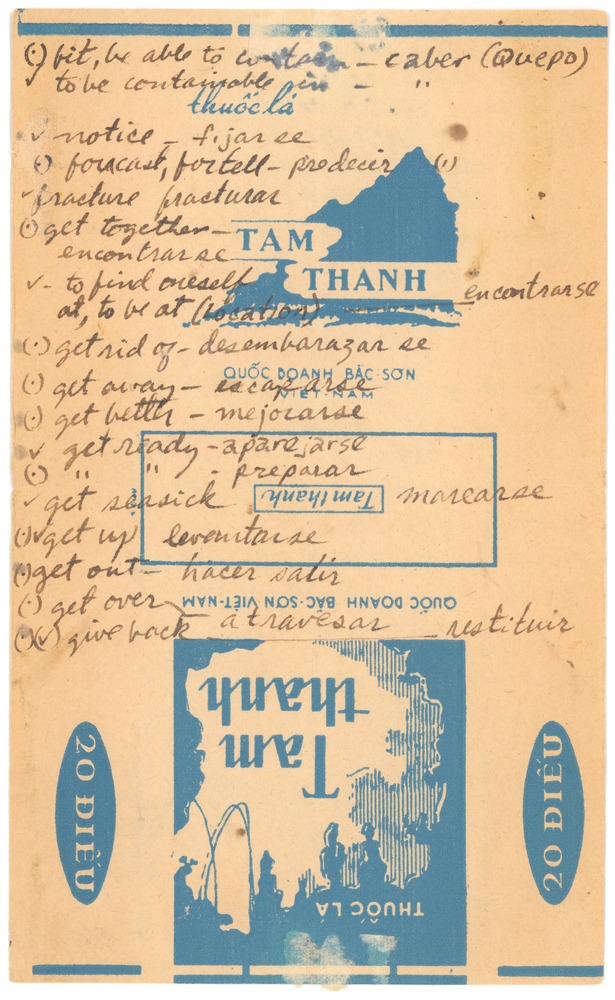 (·) fit, be able to contain – caber (Quepo)
✓ to be containable in – "
thuốc lá
✓ notice – fijarse
(·) forcast, fortell – predecir (·)
✓ fracture fracturar
(·) get together –
encontrarse
TAM
THANH
✓ - to find oneself
at, to be at (location) encontrarse
(·) get rid of – desembarazarse
QUỐC DOANH BẮC·SƠN
VIỆT-NAM
(·) get away – escaparse
(·) get better – mejorarse
✓ get ready – aparejarse
(·) " " - preparar
✓ get seasick marearse
Tam thanh
(·)✓ get up levantarse
(·) get out – hacer salir
(·) get over atravesar
QUỐC DOANH BẮC·SƠN VIỆT-NAM
(·)(✓) give back restituir
Tam
thanh
THUỐC LÁ
20 ĐIẾU
20 ĐIẾU